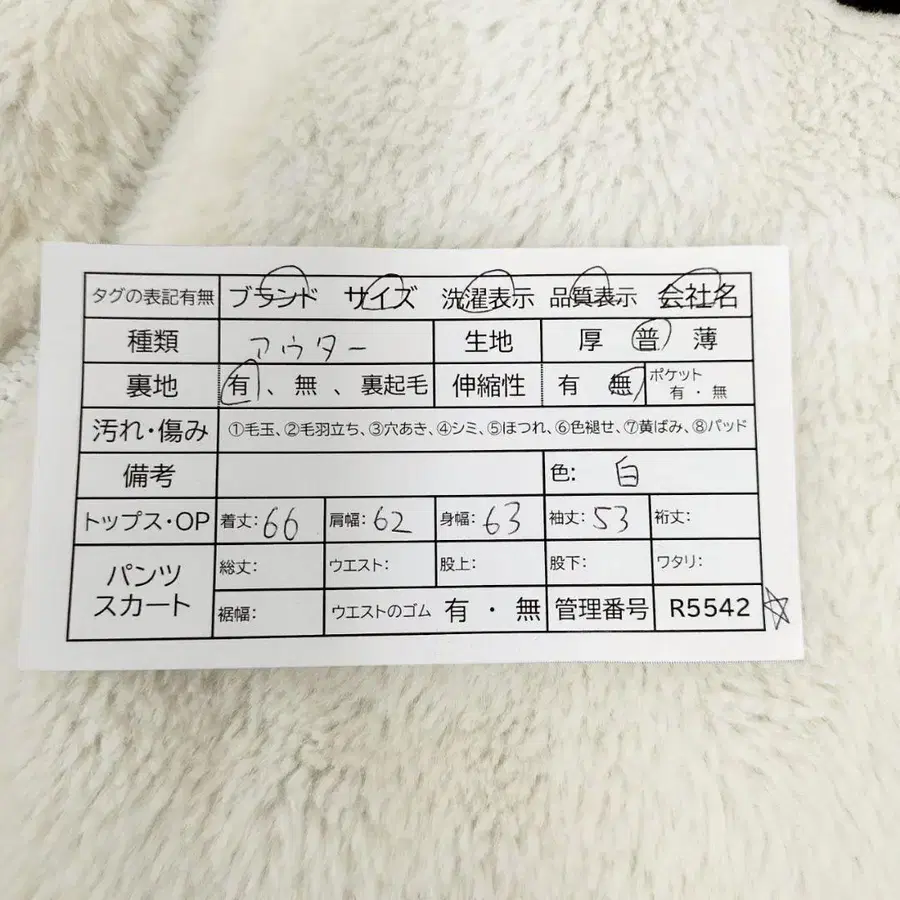 タグの表記有無 ブランド サイズ 洗濯表示 品質表示 会社名
種類 アウター 生地 厚 普 薄
裏地 有、無、裏起毛 伸縮性 有 無 ポケット 有・無
汚れ・傷み ①毛玉、②毛羽立ち、③穴あき、④シミ、⑤ほつれ、⑥色褪せ、⑦黄ばみ、⑧パッド
備考 色: 白
トップス・OP 着丈:66 肩幅:62 身幅:63 袖丈:53 裄丈:
パンツ スカート 総丈: ウエスト: 股上: 股下: ワタリ:
裾幅: ウエストのゴム 有・無 管理番号 R5542